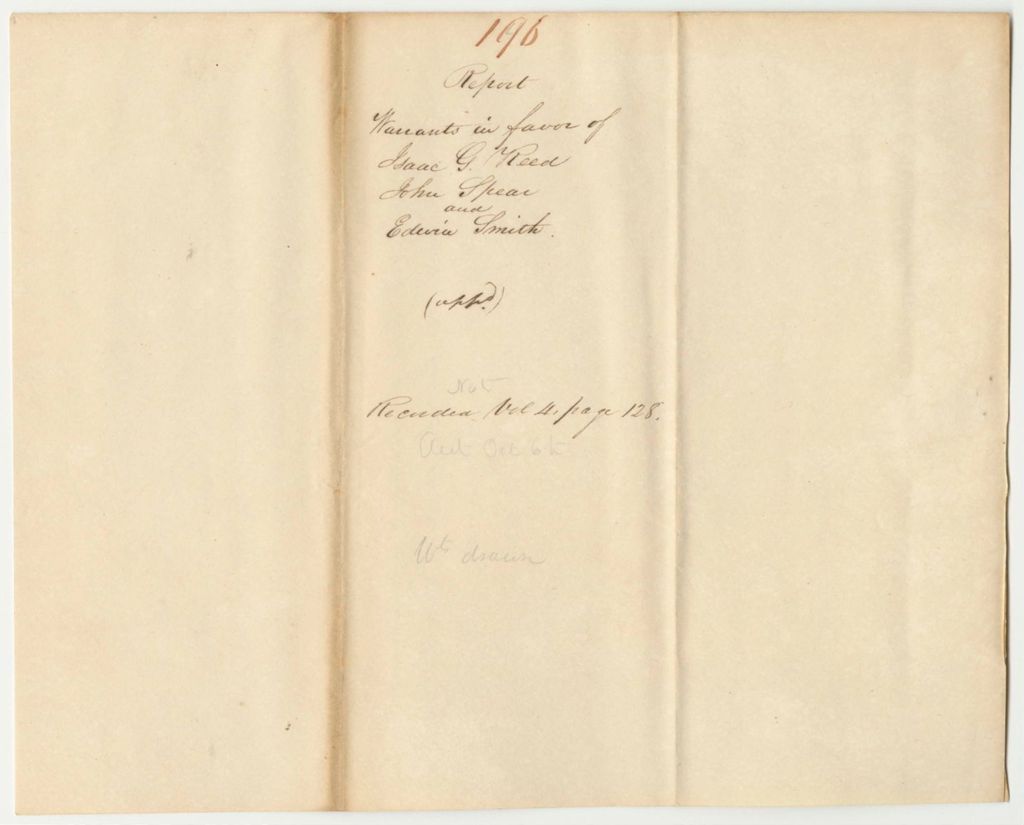 196
Report
Warrants in favor of
Isaac G. Reed
John Spear
and
Edwin Smith.
(appd)
Not
Recorded Vol 4, page 128.
Oct 6th
Wt drawn